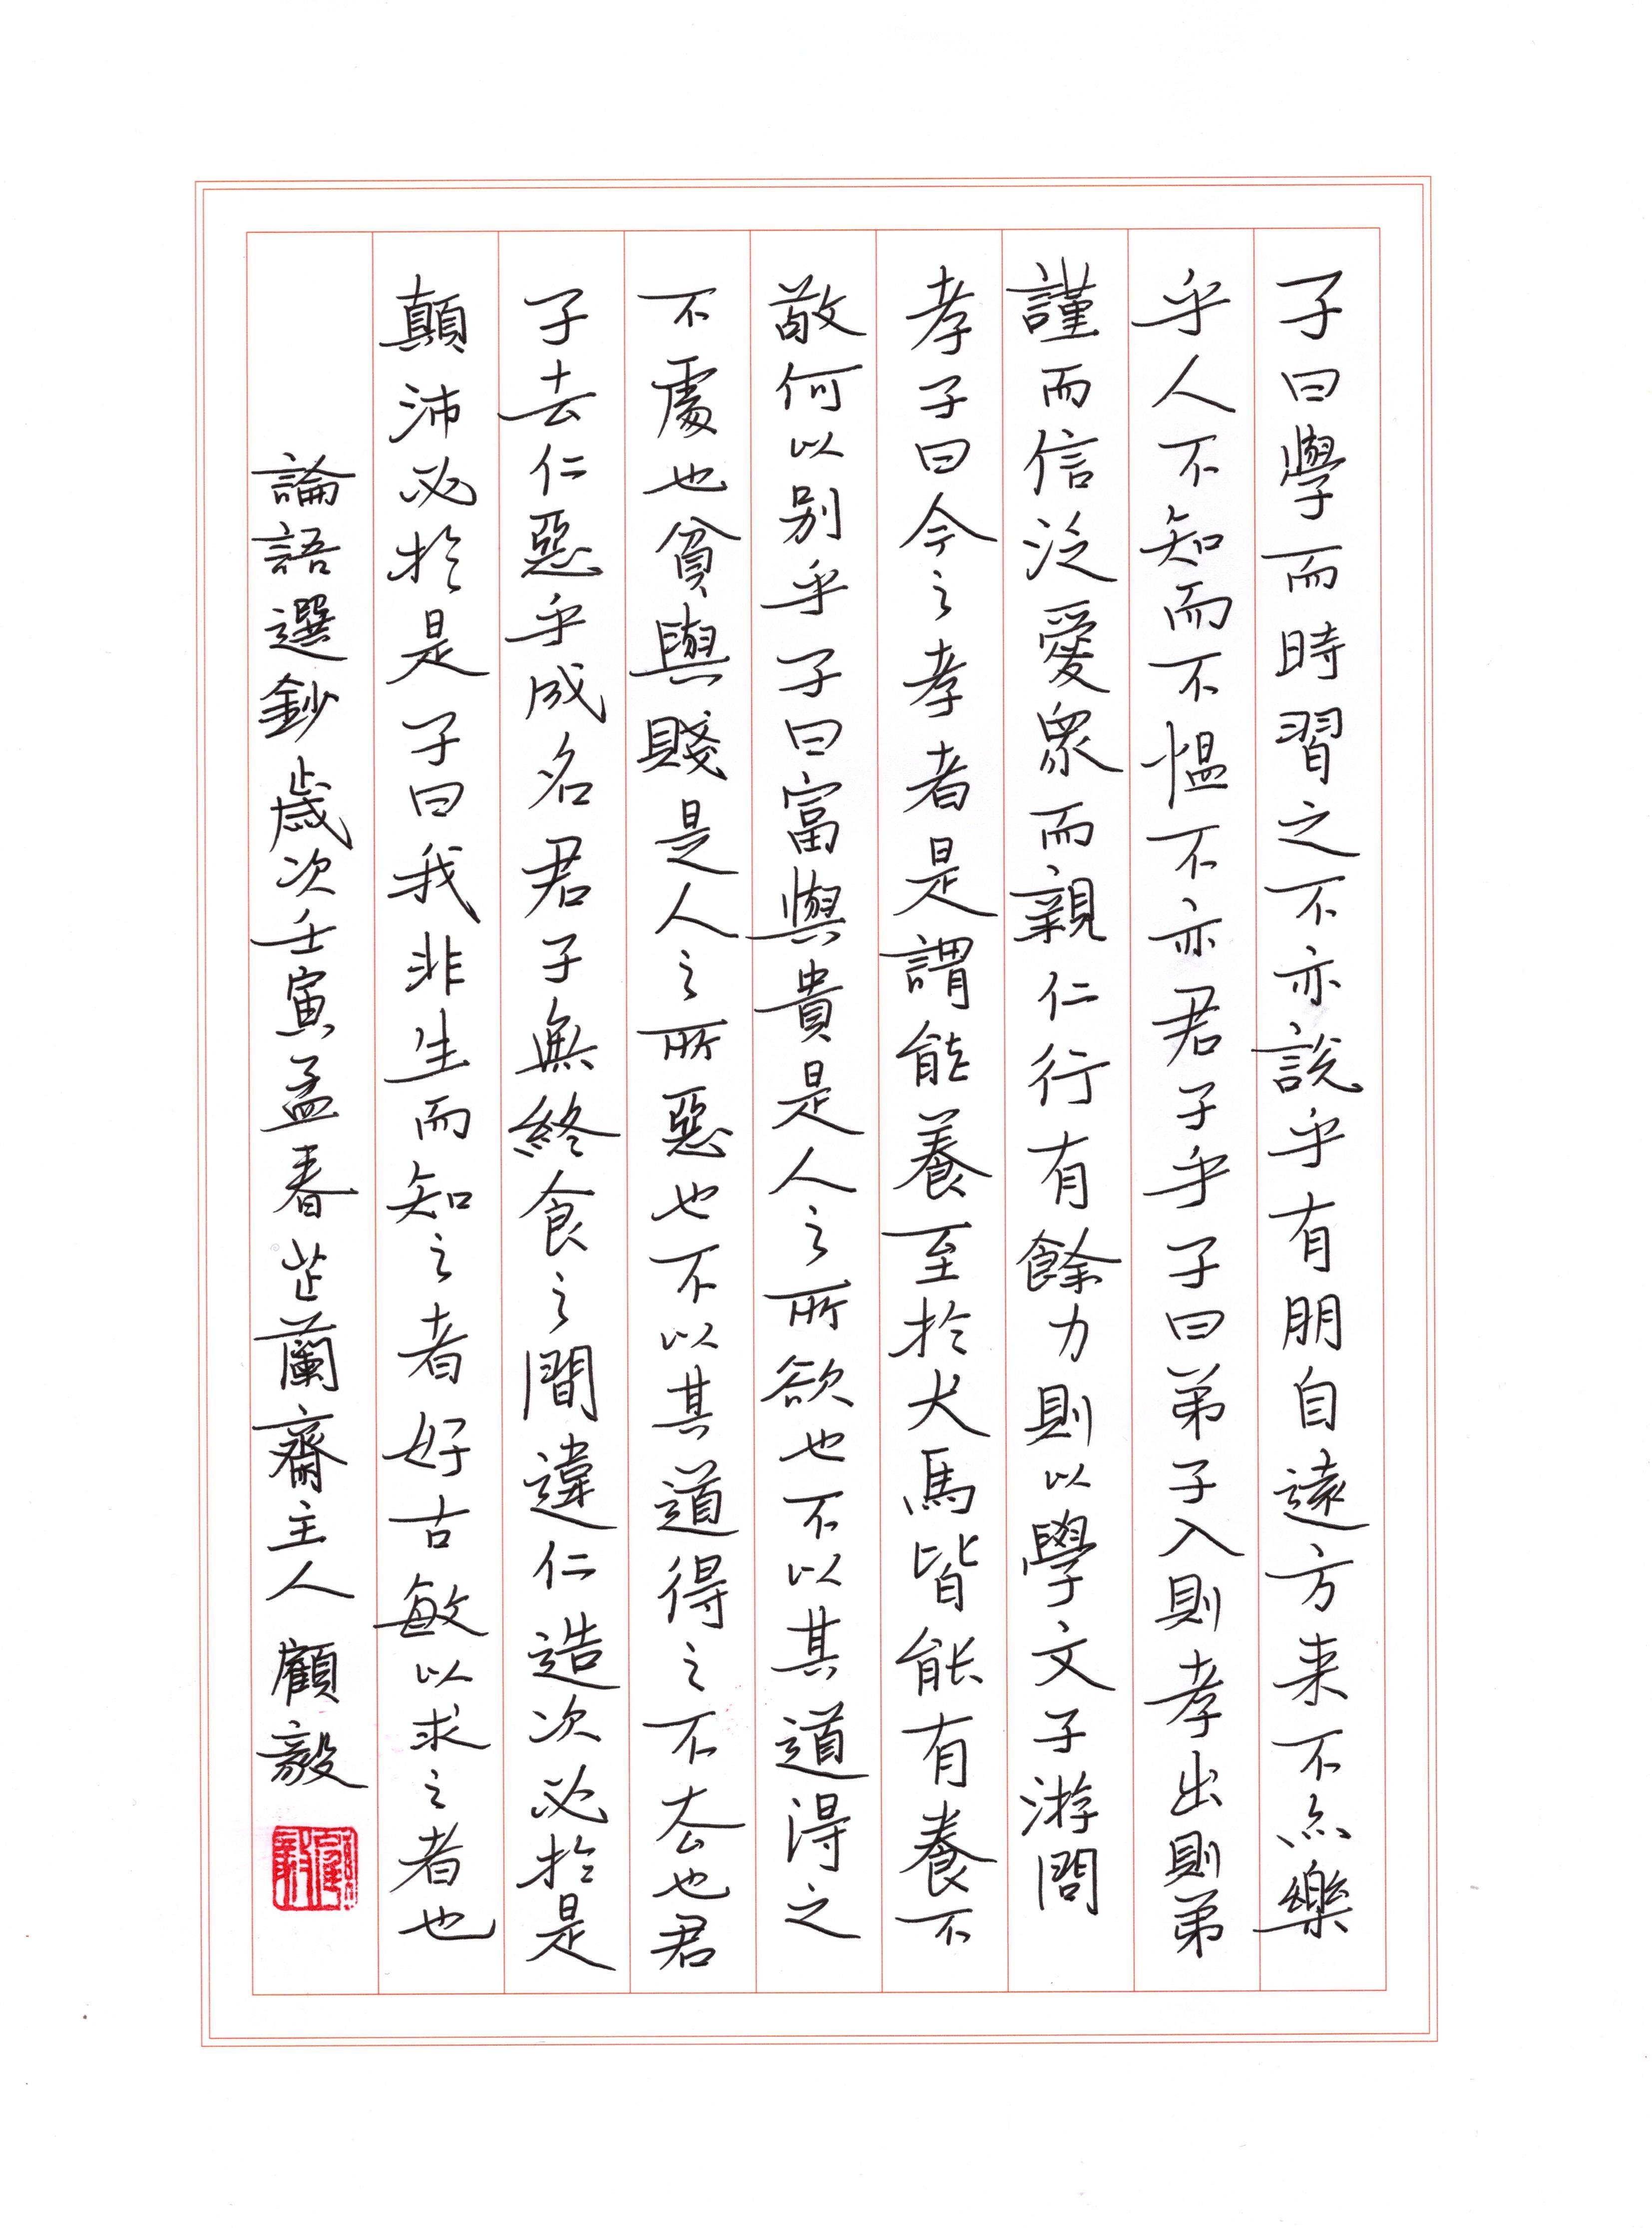 子曰學而時習之不亦説乎有朋自遠方来不亦樂
乎人不知而不愠不亦君子乎子曰弟子入則孝出則弟
謹而信泛愛眾而親仁行有餘力則以學文子游問
孝子曰今之孝者是謂能養至於犬馬皆能有養不
敬何以别乎子曰富與貴是人之所欲也不以其道得之
不處也貧與賤是人之所惡也不以其道得之不去也君
子去仁惡乎成名君子無終食之間違仁造次必於是
顛沛必於是子曰我非生而知之者好古敏以求之者也
論語選鈔歲次壬寅孟春芷蘭齋主人顧毅
顧毅